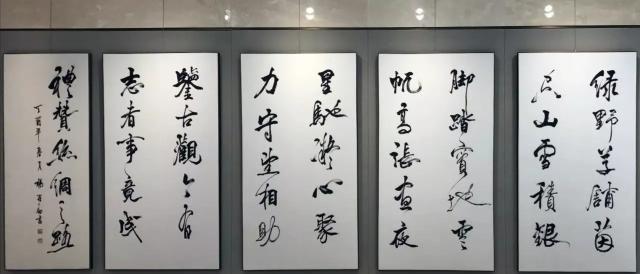 绿野草鋪茵
空山雪積銀
脚踏實地雲
帆高張晝夜
星馳凝心聚
力守望相助
鑒古觀今有
志者事竟成
禮贊絲綢之路
丁酉年春月